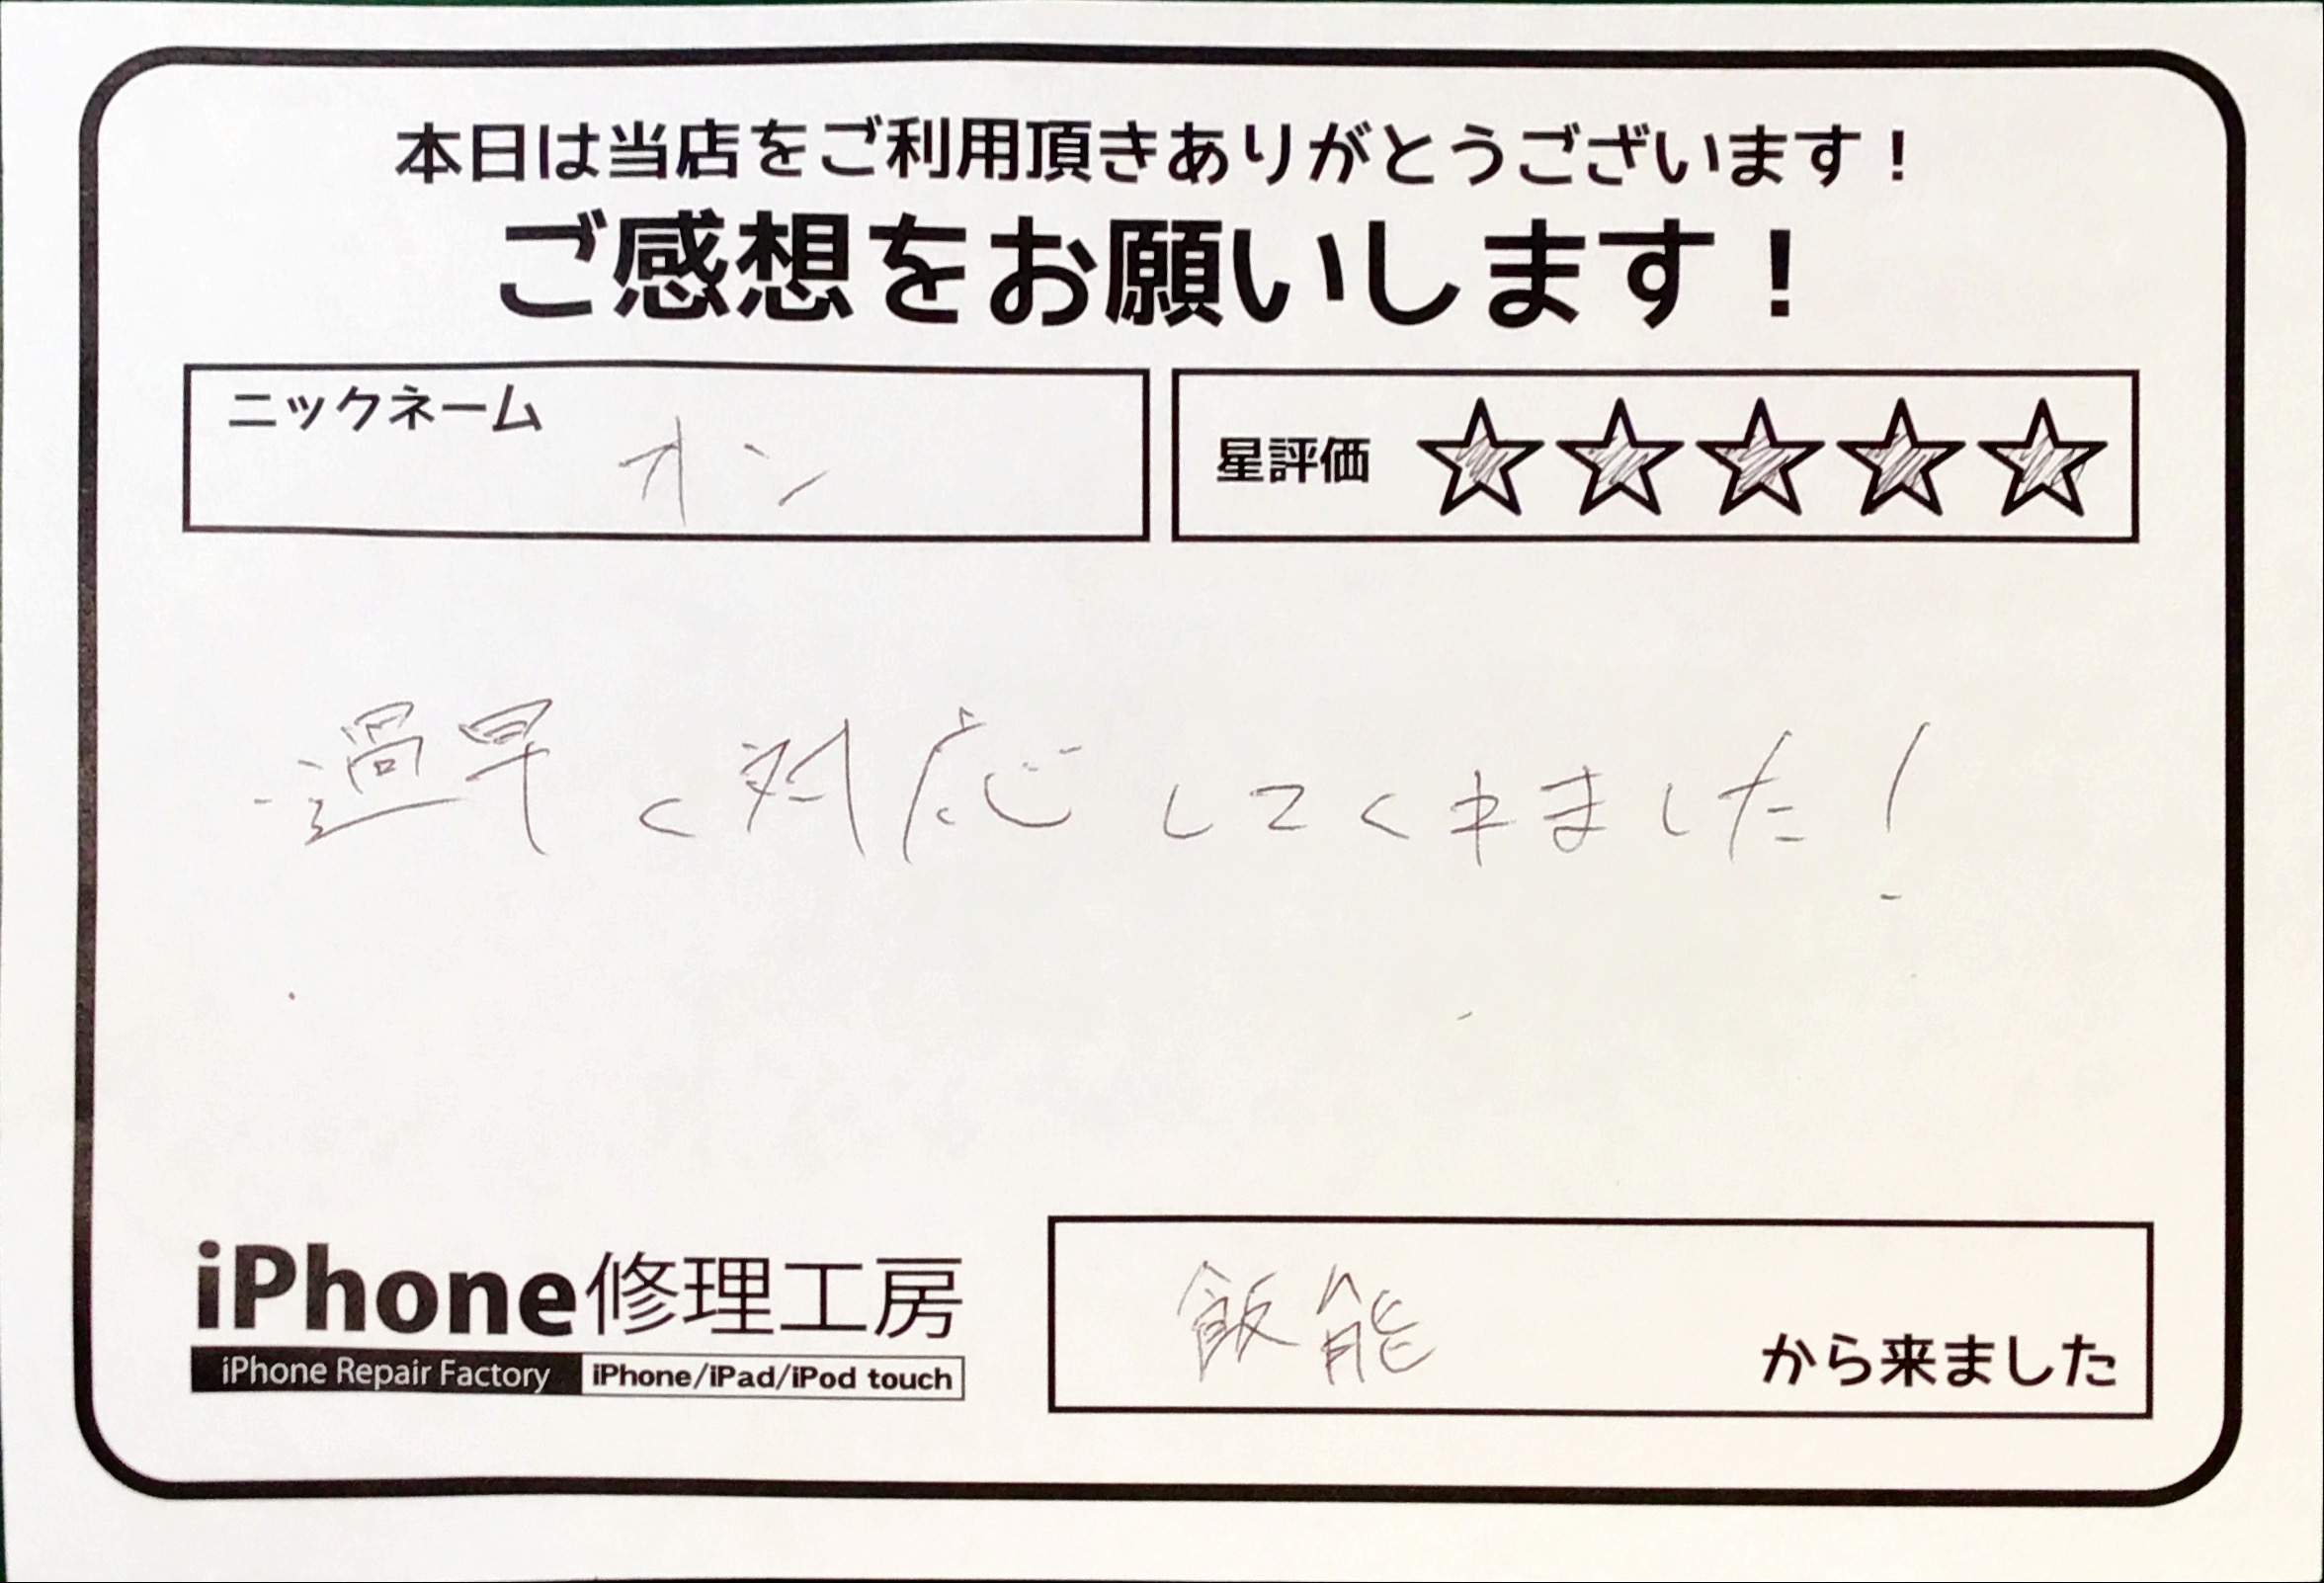 本日は当店をご利用頂きありがとうございます！
ご感想をお願いします！
ニックネーム オン
星評価 ☆☆☆☆☆
過早く対応してくれました！
iPhone修理工房
iPhone Repair Factory iPhone/iPad/iPod touch
飯能 から来ました